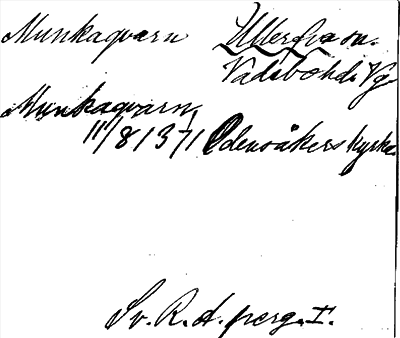 Munkaqvarn Ullervå sn.
Vadsbo hd. Vg.
Munkaqvarn,
11/8 1371 Odensåkers kyrka.
Sv. R. A. perg. I.